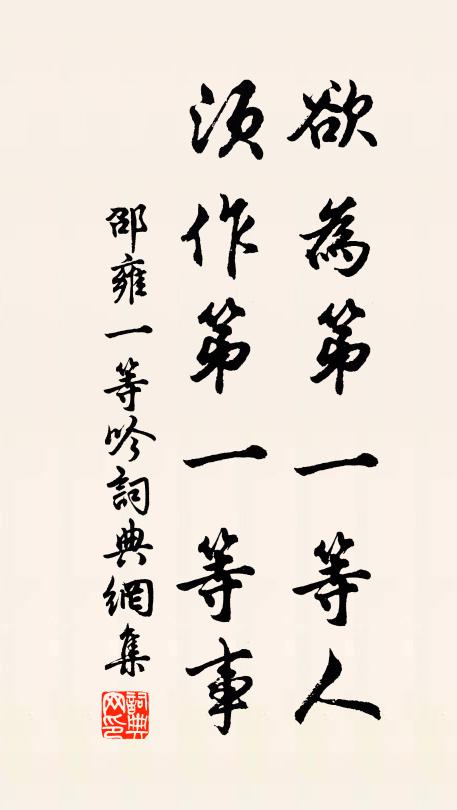 欲為第一等人
須作第一等事
邵雍一等吟詞典網集
詞典网印